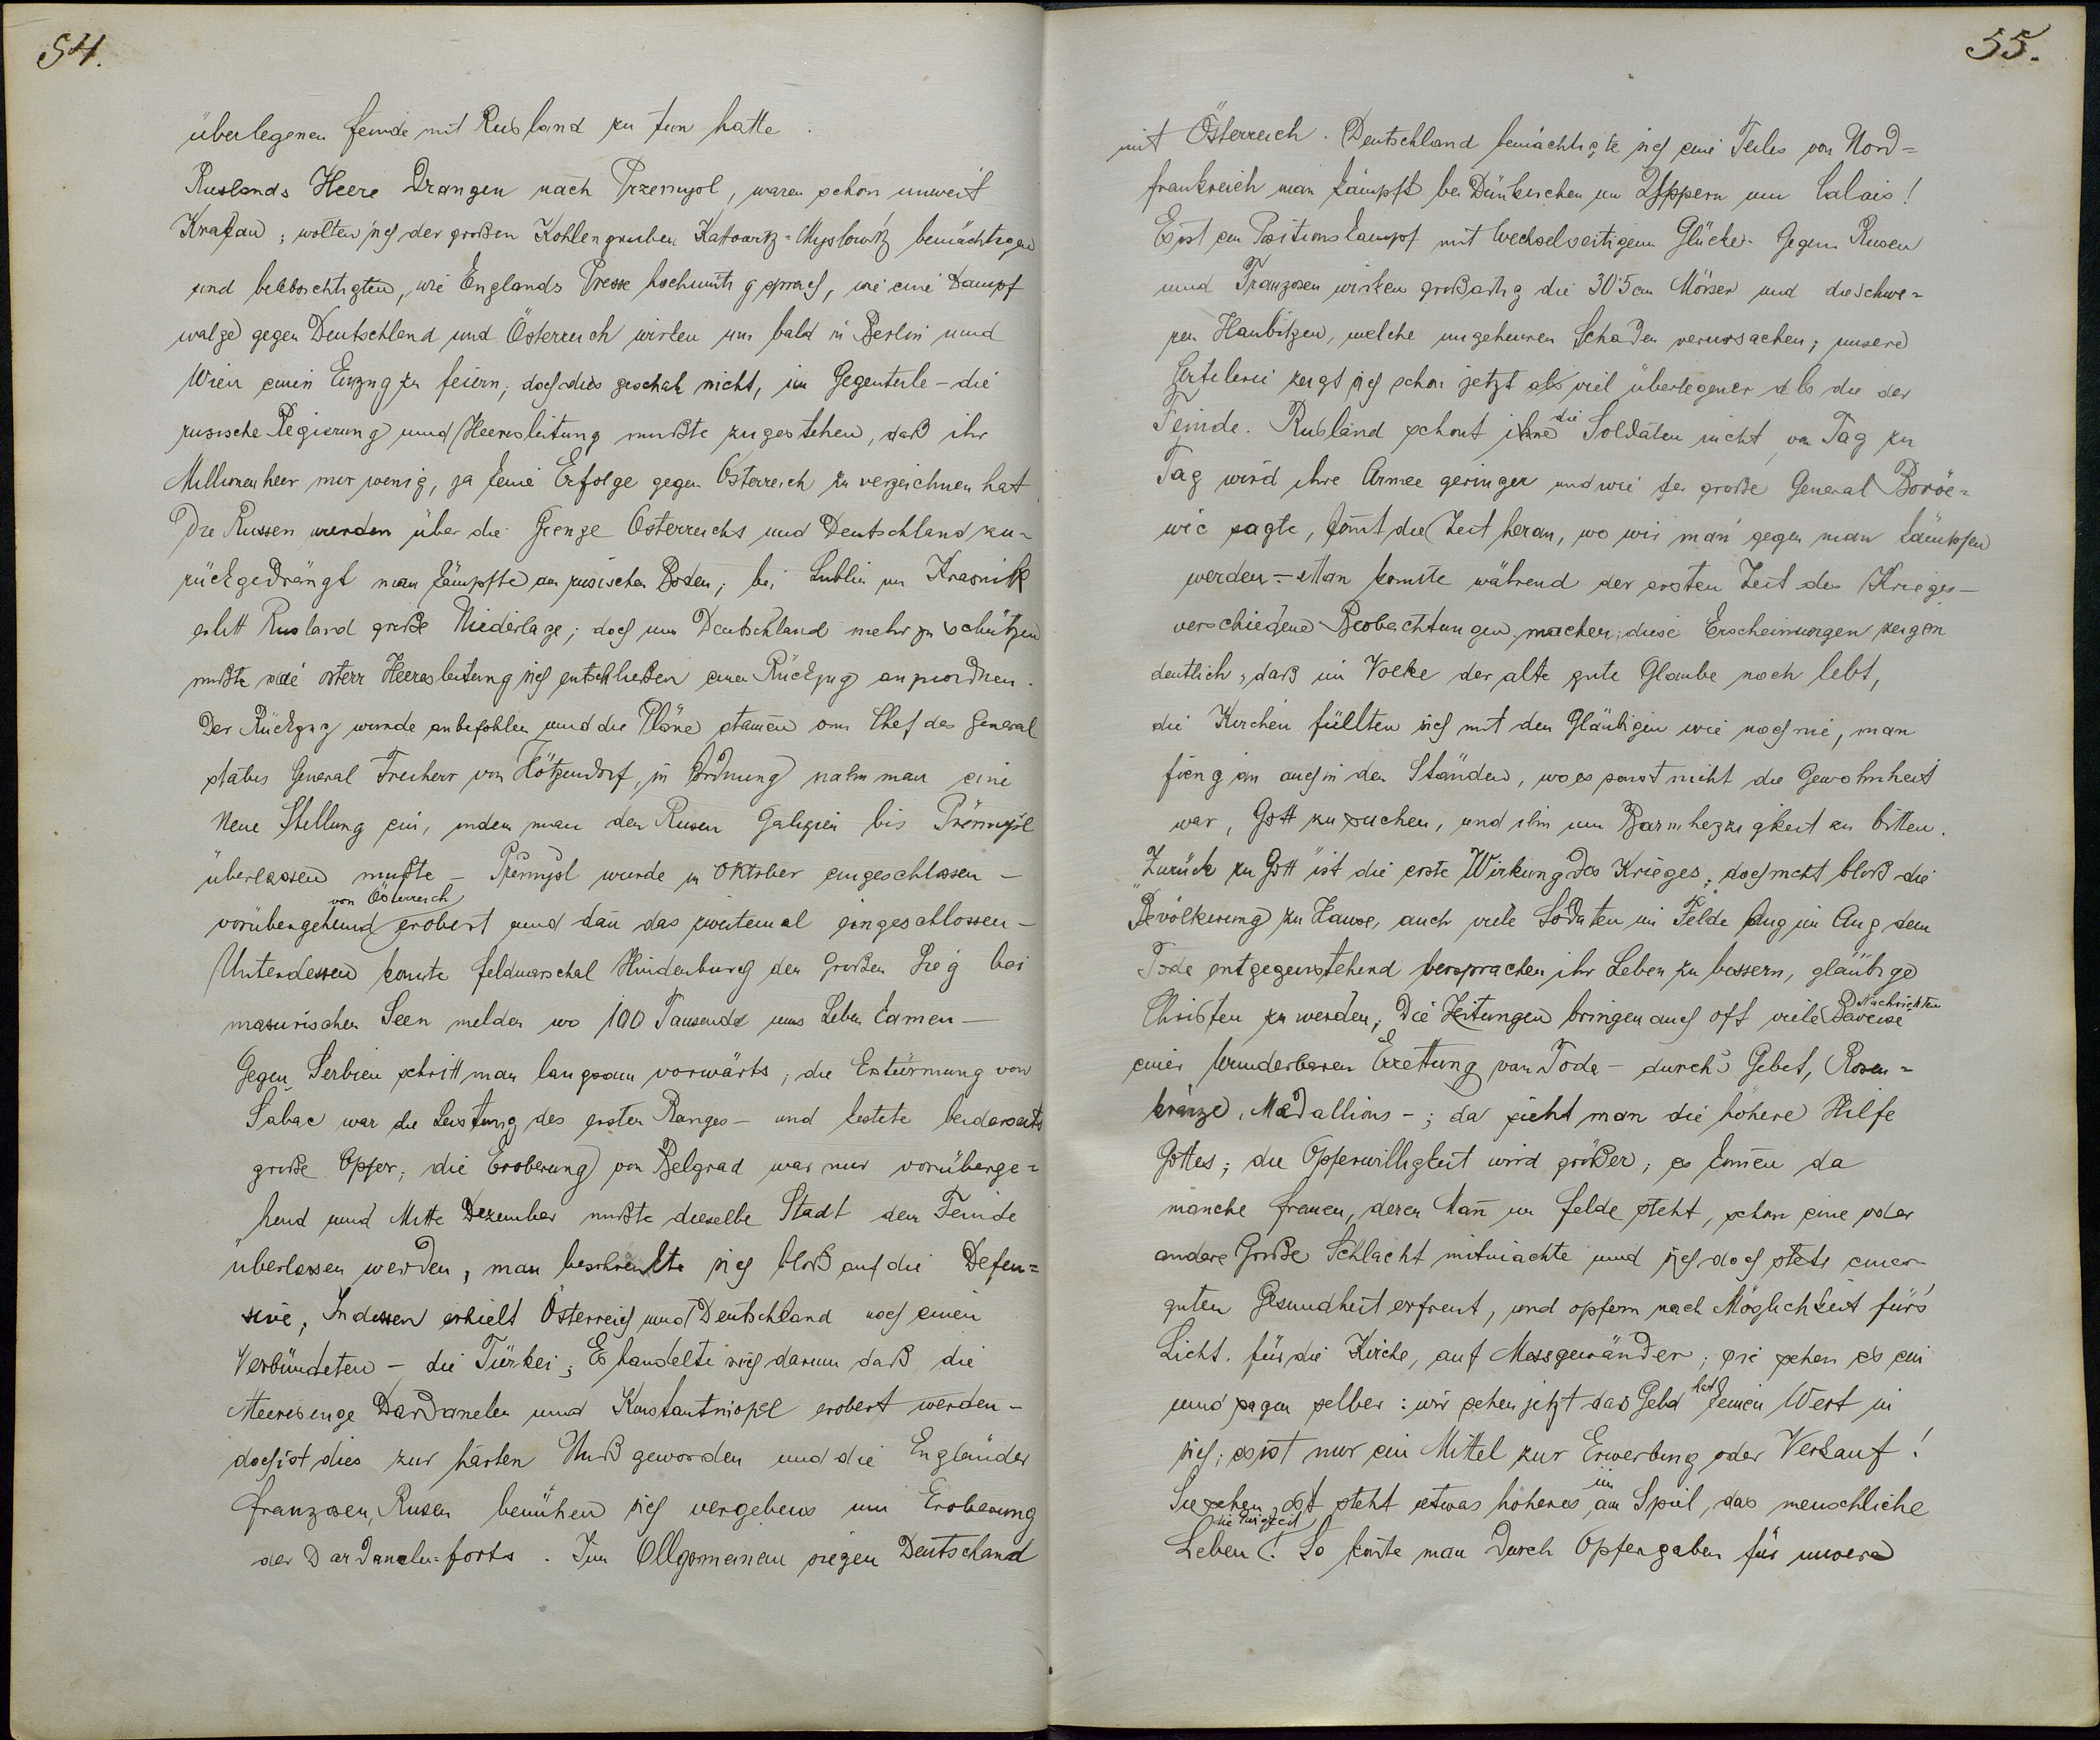 54.
überlegenen Feinde mit Rusland zu tun hatte.
Ruslands Heere Drangen nach Przemysl, waren schon unweit
Krakau; wolten sich der großen Kohlengruben Kattowitz-Myslowitz bemächtigen
und beabsichtigten, wie Englands Presse hochmütig sprach, wie eine Dampf
walze gegen Deutschland und Österreich wirken um bald in Berlin und
Wien einen Einzug zu feiern; doch dies geschah nicht, im Gegenteile - die
rusische Regierung und Heeresleitung mußte zugestehen, daß ihr
Millionenheer nur wenig, ja keine Erfolge gegen Österreich zu verzeichnen hat
Die Russen wurden über die Grenze Österreichs und Deutschland zu-
rückgedrängt man kämpfte am rusischen Boden; bei Lublin um Krasnik
erlitt Rusland große Niederlage; doch um Deutschland mehr zu schützen
mußte die österr Heeresleitung sich entschließen einen Rückzug anzuordnen.
Der Rückzug wurde anbefohlen und die Pläne stamen vom Chef des General
stabes General Freiherr von Hötzendorf, in Ordnung nahm man eine
Neue Stellung ein, indem man den Rusen Galizien bis Přemysl
überlassen mußte - Přemysl wurde in Oktober eingeschlossen -
von Österreich
vorübergehend erobert und dan̄ das zweitemal eingeschlossen -
Unterdessen konnte Feldmarschal Hindenburg den Großen Sieg bei
masurischen Seen melden wo 100 Tausende ums Leben kamen -
Gegen Serbien schritt man langsam vorwärts; die Erstürmung von
Sabac war die Leistung des ersten Ranges - und kostete beiderseits
große Opfer; die Eroberung von Belgrad war nur vorüberge=
hend und Mitte Dezember mußte dieselbe Stadt dem Feinde
überlassen werden, man beschränkte sich bloß auf die Defen=
sive, Indessen erhielt Österreich und Deutschland noch einen
Verbündeten - die Türkei; Es handelte sich darum daß die
Meeresenge Dardanelen und Konstantinopel erobert werden -
doch ist dies zur harten Nuß geworden und die Engländer
Franzosen, Rusen bemühen sich vergebens um Eroberung
der Dardanelen-forts. Im Allgemeinen siegen Deutschand
55.
mit Österreich. Deutschland bemächtigte sich eines Teiles von Nord=
frankreich man kämpft bei Dünkirchen um Yppern um Calais!
Es ist ein Positionskampf mit wechselseitigem Glücke. Gegen Rusen
und Franzosen wirken großartig die 30'5 cm Mörser und die schwe=
ren Haubitzen, welche ungeheuren Schaden verursachen; unsere
Artelerie zeigt sich schon jetzt als viel überlegener als die der
Feinde. Rusland schont ihre die Soldaten nicht, von Tag zu
Tag wird ihre Armee geringer und wie der große General Boroe=
wic sagte, kom̄t die Zeit heran, wo wir man gegen man kämpfen
werden - Man konnte während der ersten Zeit des Krieges -
verschiedene Beobachtungen machen; diese Erscheinungen zeigen
deutlich, daß im Volke der alte gute Glaube noch lebt,
die Kirchen füllten sich mit den Gläubigen wie noch nie, man
fieng an auch in den Ständen, wo es sonst nicht die Gewohnheit
war, Gott zu suchen, und ihn um Barmherzigkeit zu bitten.
Zurück zu Gott" ist die erste Wirkung des Krieges; doch nicht bloß die
Bevölkerung zu Hause, auch viele Soldaten im Felde Aug im Aug dem
Tode entgegenstehend versprachen ihr Leben zu bessern, gläubige
Christen zu werden; Die Zeitungen bringen auch oft viele Beweise Nachrichten
einer Wunderbaren Errettung vom Tode - durch's Gebet, Rosen=
kränze, Medallions -; da sieht man die höhere Hilfe
Gottes; die Opferwilligkeit wird größer; es kom̄en da
manche Frauen, deren Man̄ im Felde steht, schon eine oder
andere Große Schlacht mitmachte und sich doch stets einer
guten Gesundheit erfreut, und opfern nach Möglichkeit für's
Licht, für die Kirche, auf Messgewänder; sie sehen es ein
und sagen selber: wir sehen jetzt das Geld hat keinen Wert in
sich; es ist nur ein Mittel zur Erwerbung oder Verkauf!
Sie sehen, es steht etwas höheres im am Spiel, das menschliche
die Ewigkeit
Leben! So konnte man Durch Opfergaben für unsere